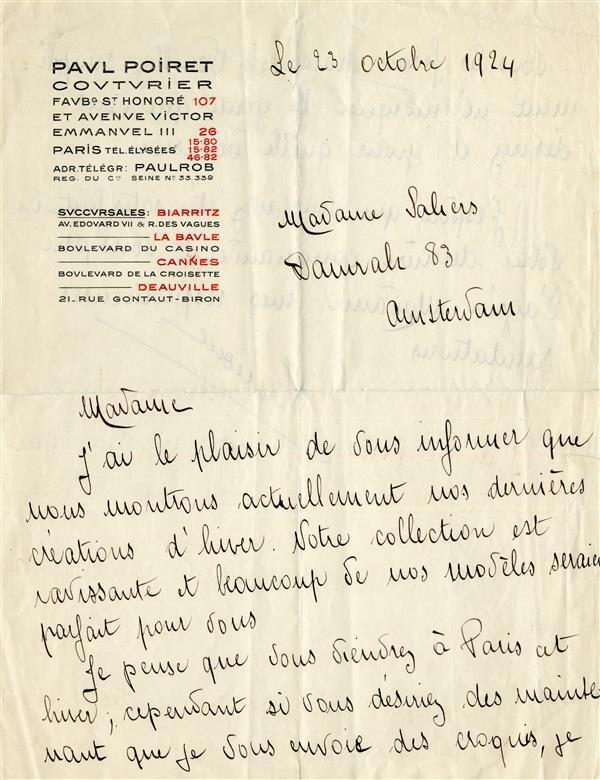 PAVL POIRET
COVTVRIER
FAVBG ST HONORÉ 107
ET AVENVE VICTOR
EMMANVEL III 26
PARIS TEL. ÉLYSÉES 15-80
15-82
46-82
ADR. TÉLÉGR: PAULROB
REG. DU CCE SEINE No 33.339
SVCCVRSALES: BIARRITZ
AV. EDOVARD VII & R. DES VAGUES
LA BAVLE
BOVLEVARD DU CASINO
CANNES
BOVLEVARD DE LA CROISETTE
DEAUVILLE
21-RUE GONTAUT-BIRON
Le 23 octobre 1924
Madame
83
Amsterdam
Madame
J'ai le plaisir de vous informer que
nous montrons actuellement nos dernières
créations d'hiver. Notre collection est
ravissante et beaucoup de nos modèles seraie
parfait pour vous
Je pense que vous viendrez à Paris cet
hiver; cependant si vous désiriez des mainte-
nant que je vous envoie des croquis, je